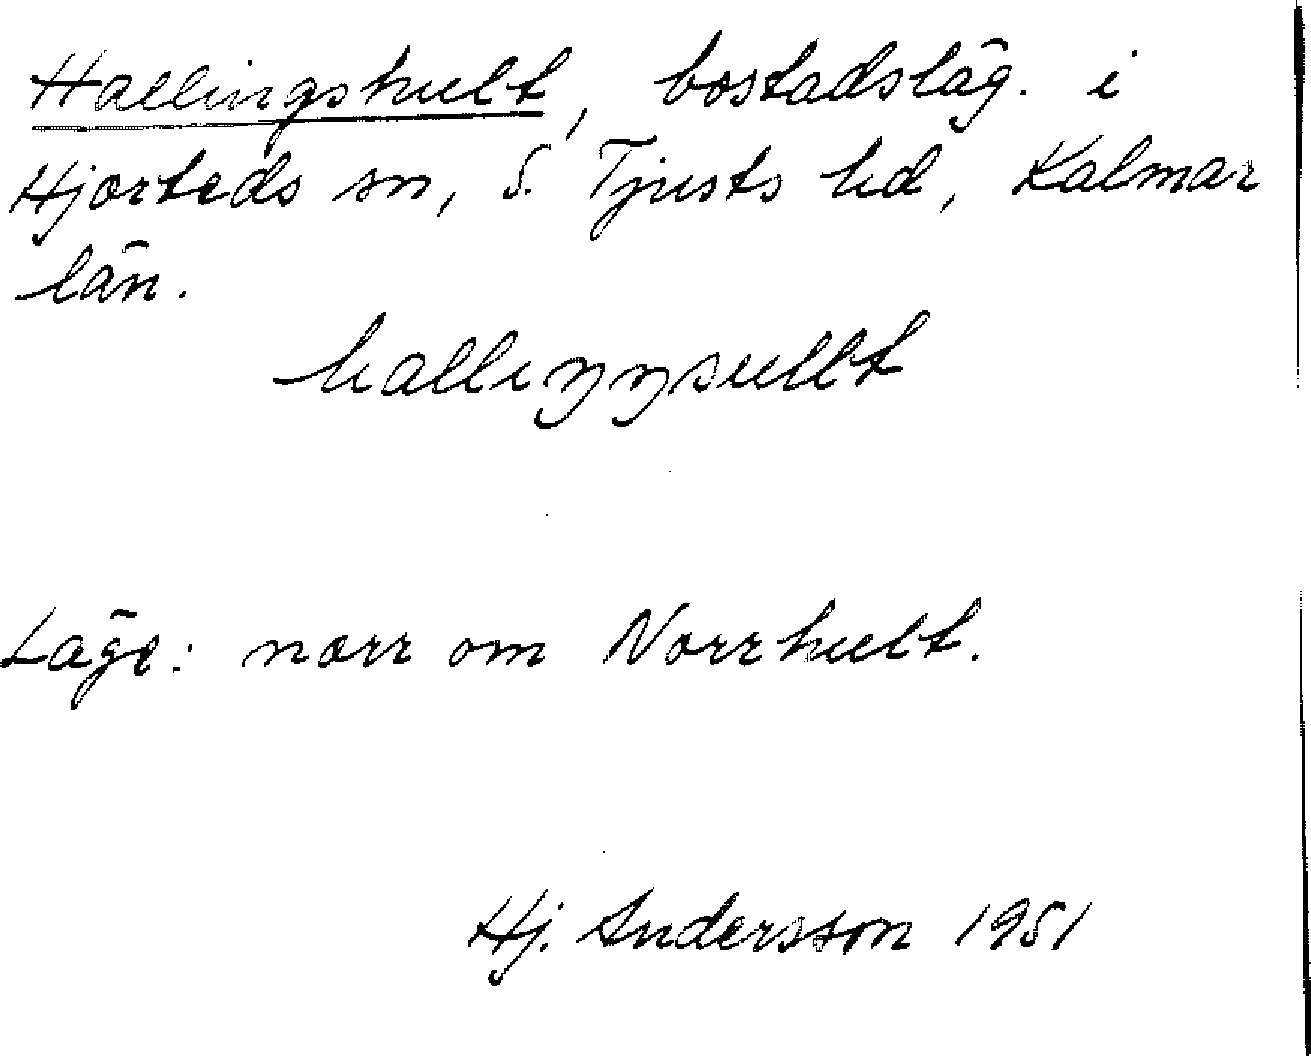 Hallingshult, bostadsläg. i
Hjorteds sn, S. Tjusts hd, Kalmar
län.
halliŋŋsullt
Läge: norr om Norrhult.
Hj. Andersson 1951